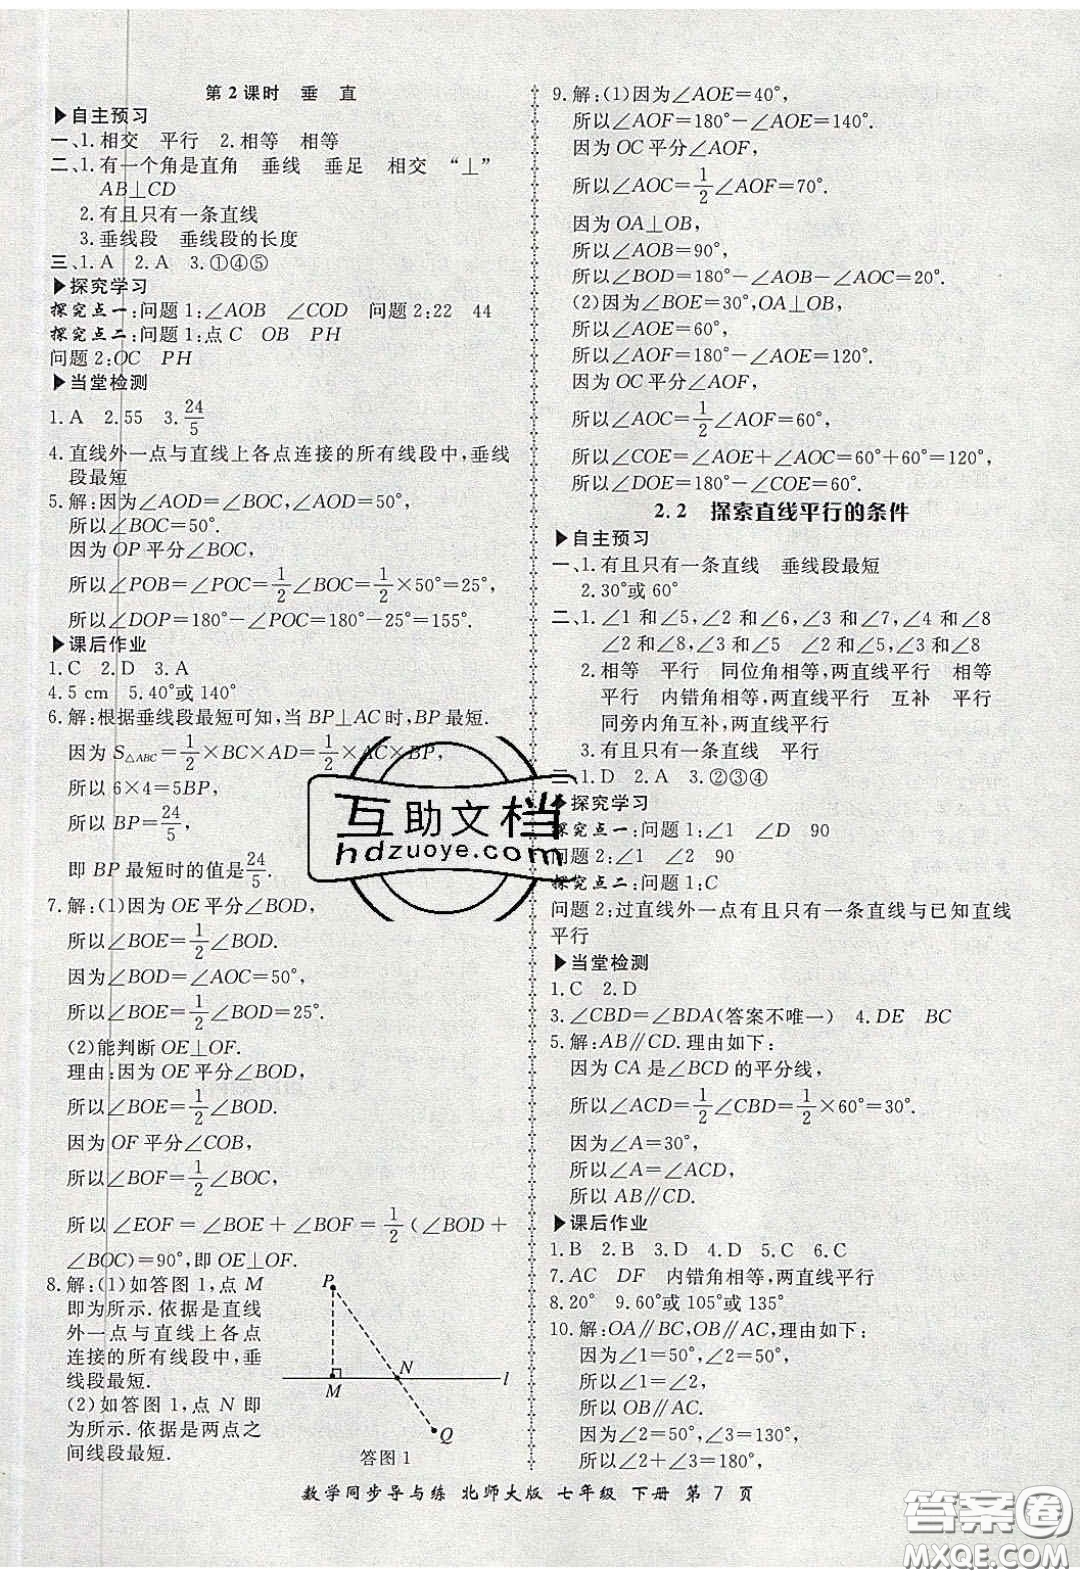 第2课时 垂 直
▶自主预习
一、1.相交 平行 2.相等 相等
二、1.有一个角是直角 垂线 垂足 相交 “⊥”
AB⊥CD
2.有且只有一条直线
3.垂线段 垂线段的长度
三、1.A 2.A 3.①④⑤
▶探究学习
探究点一:问题1:∠AOB ∠COD 问题2:22 44
探究点二:问题1:点C OB PH
问题2:OC PH
▶当堂检测
1.A 2.55 3.24/5
4.直线外一点与直线上各点连接的所有线段中,垂线
段最短
5.解:因为∠AOD=∠BOC,∠AOD=50°,
所以∠BOC=50°.
因为OP平分∠BOC,
所以∠POB=∠POC=1/2∠BOC=1/2×50°=25°,
所以∠DOP=180°-∠POC=180°-25°=155°.
▶课后作业
1.C 2.D 3.A
4.5 cm 5.40°或140°
6.解:根据垂线段最短可知,当BP⊥AC时,BP最短.
因为S△ABC=1/2×BC×AD=1/2×AC×BP,
所以6×4=5BP,
所以BP=24/5,
即BP最短时的值是24/5.
7.解:(1)因为OE平分∠BOD,
所以∠BOE=1/2∠BOD.
因为∠BOD=∠AOC=50°,
所以∠BOE=1/2∠BOD=25°.
(2)能判断OE⊥OF.
理由:因为OE平分∠BOD,
所以∠BOE=1/2∠BOD.
因为OF平分∠COB,
所以∠BOF=1/2∠BOC,
所以∠EOF=∠BOE+∠BOF=1/2(∠BOD+
∠BOC)=90°,即OE⊥OF.
8.解:(1)如答图1,点M
即为所示.依据是直线
外一点与直线上各点
连接的所有线段中,垂
线段最短.
(2)如答图1,点N即
为所示.依据是两点之
间线段最短.
P
M
N
l
Q
答图1
9.解:(1)因为∠AOE=40°,
所以∠AOF=180°-∠AOE=140°.
因为OC平分∠AOF,
所以∠AOC=1/2∠AOF=70°.
因为OA⊥OB,
所以∠AOB=90°,
所以∠BOD=180°-∠AOB-∠AOC=20°.
(2)因为∠BOE=30°,OA⊥OB,
所以∠AOE=60°,
所以∠AOF=180°-∠AOE=120°.
因为OC平分∠AOF,
所以∠AOC=1/2∠AOF=60°,
所以∠COE=∠AOE+∠AOC=60°+60°=120°,
所以∠DOE=180°-∠COE=60°.
2.2 探索直线平行的条件
▶自主预习
一、1.有且只有一条直线 垂线段最短
2.30°或60°
二、1.∠1和∠5,∠2和∠6,∠3和∠7,∠4和∠8
∠2和∠8,∠3和∠5 ∠2和∠5,∠3和∠8
2.相等 平行 同位角相等,两直线平行 相等
平行 内错角相等,两直线平行 互补 平行
同旁内角互补,两直线平行
3.有且只有一条直线 平行
三、1.D 2.A 3.②③④
▶探究学习
探究点一:问题1:∠1 ∠D 90
问题2:∠1 ∠2 90
探究点二:问题1:C
问题2:过直线外一点有且只有一条直线与已知直线
平行
▶当堂检测
1.C 2.D
3.∠CBD=∠BDA(答案不唯一) 4.DE BC
5.解:AB∥CD.理由如下:
因为CA是∠BCD的平分线,
所以∠ACD=1/2∠CBD=1/2×60°=30°.
因为∠A=30°,
所以∠A=∠ACD,
所以AB∥CD.
▶课后作业
1.B 2.B 3.D 4.D 5.C 6.C
7.AC DF 内错角相等,两直线平行
8.20° 9.60°或105°或135°
10.解:OA∥BC,OB∥AC,理由如下:
因为∠1=50°,∠2=50°,
所以∠1=∠2,
所以OB∥AC.
因为∠2=50°,∠3=130°,
所以∠2+∠3=180°,
数学同步导与练 北师大版 七年级 下册 第7页
互助文档
hdzuoye.com
答案圈
MXQE.COM